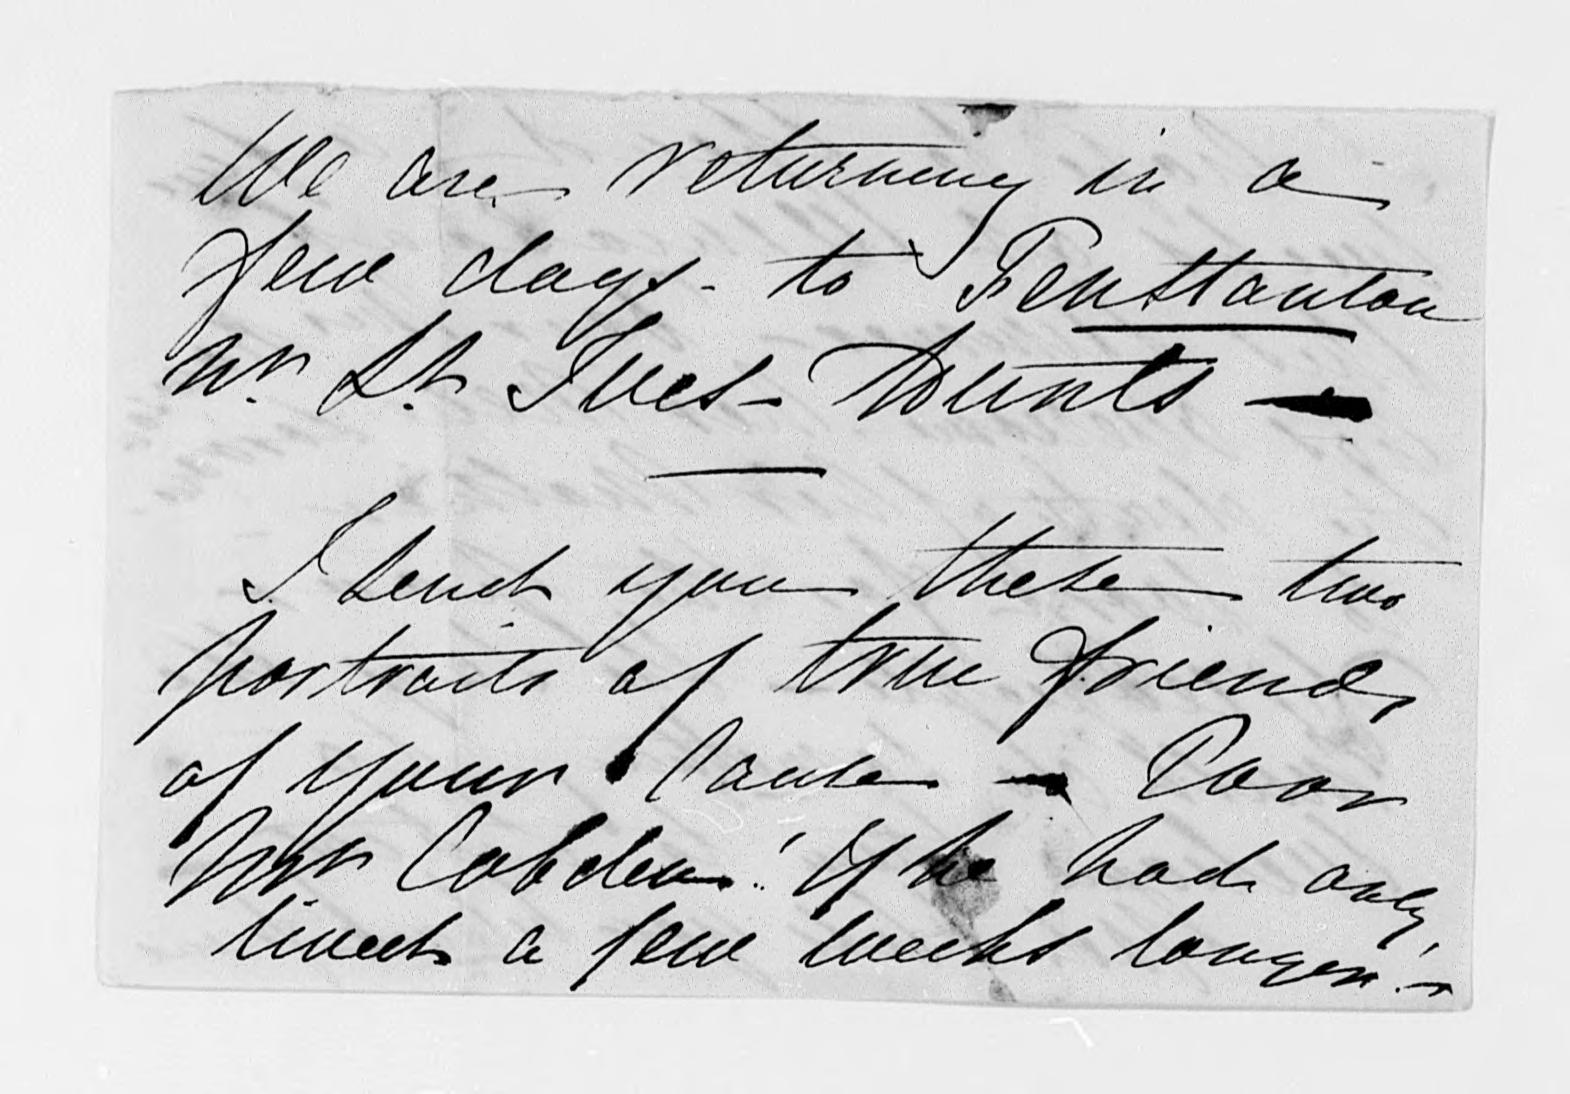 We are returning in a
few days - to Fenstanton
nr. St. Ives - Hunts -
I send you these two
portraits of true friends
of your Cause - Poor
Mr Cobden! If he had only
lived a few weeks longer! -